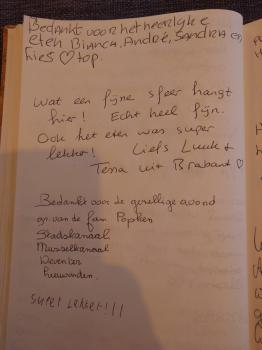 Bedankt voor het heerlijke
eten Bianca, André, Sandra en
Lies ♡ top.
Wat een fijne sfeer hangt
hier! Echt heel fijn.
Ook het eten was super
lekker! Liefs Luuk &
Tessa uit Brabant ♡
Bedankt voor de gezellige avond
van de fam Popken
Stadskanaal
Musselkanaal
Deventer
Super lekker!!!